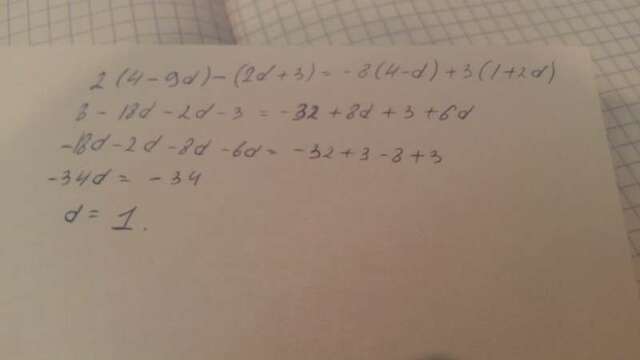 2(4-9d)-(2d+3)=-8(4-d)+3(1+2d)
8-18d-2d-3=-32+8d+3+6d
-18d-2d-8d-6d=-32+3-8+3
-34d=-34
d=1.